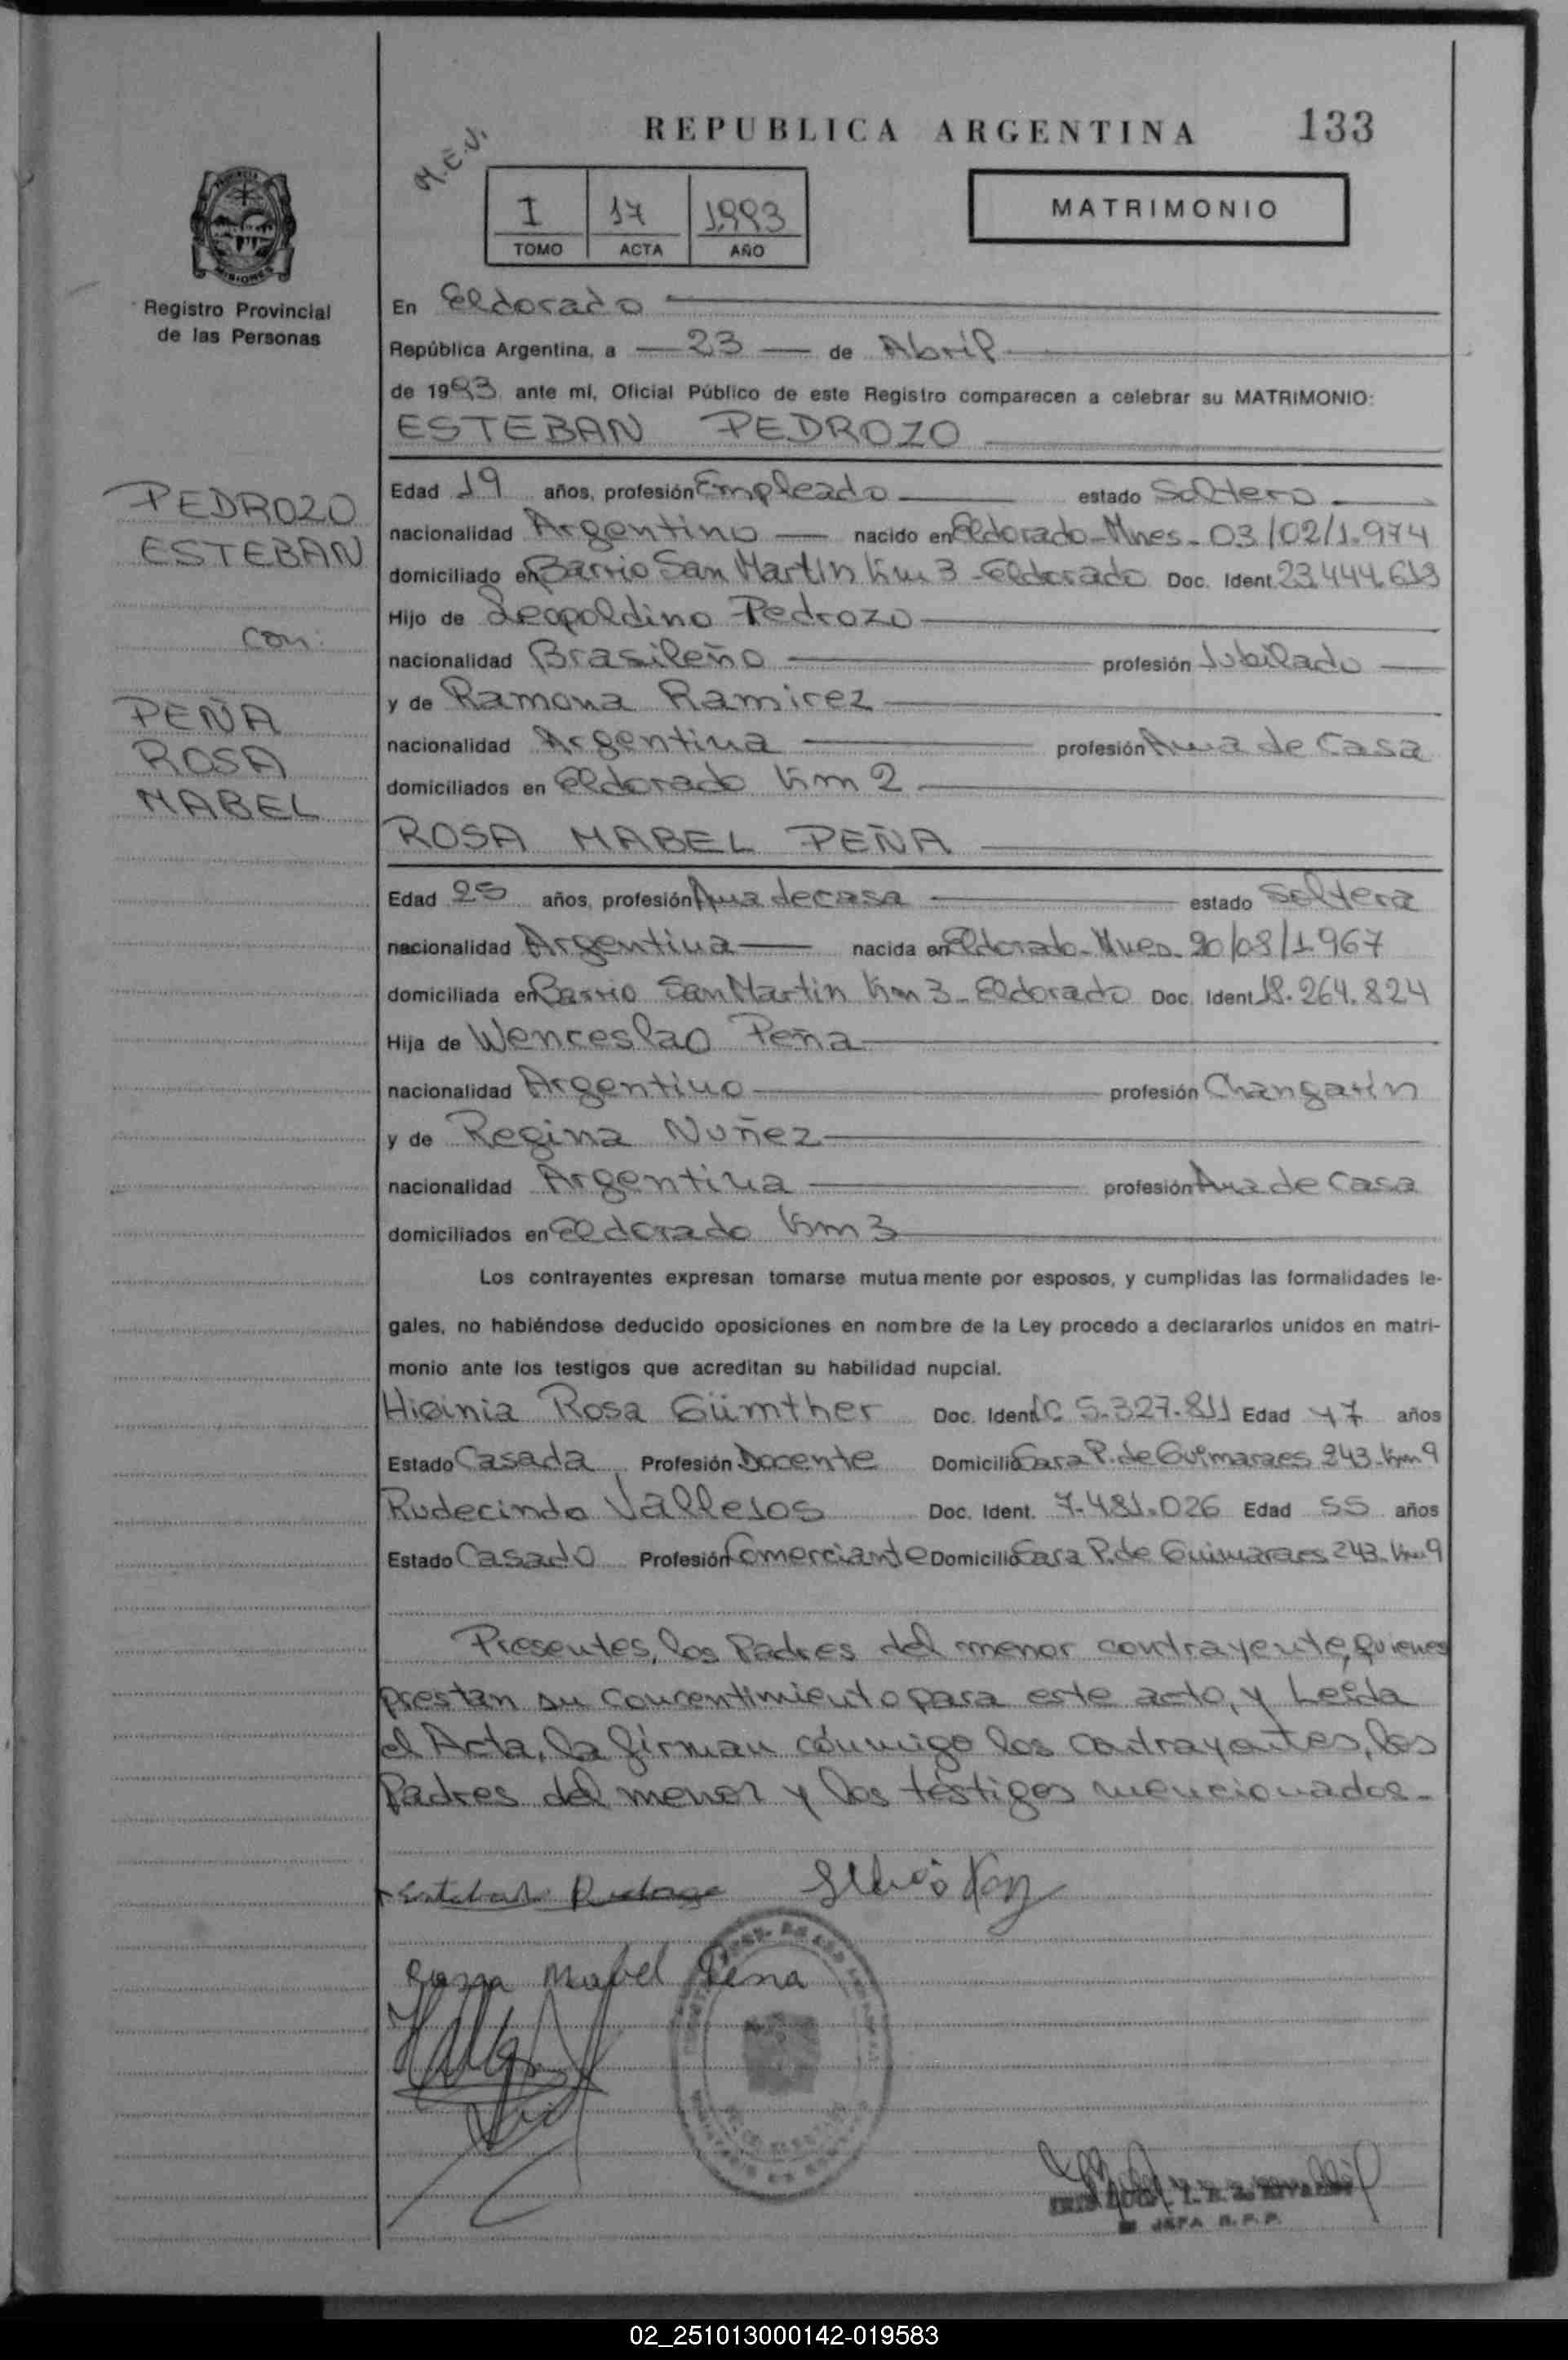 REPUBLICA ARGENTINA 133
M.E.V.
I 17 1993
TOMO ACTA AÑO
MATRIMONIO
MISIONES
Registro Provincial
de las Personas
En Eldorado
República Argentina, a 23 de Abril
de 1993 ante mi, Oficial Público de este Registro comparecen a celebrar su MATRIMONIO:
ESTEBAN PEDROZO
PEDROZO
ESTEBAN
con:
PEÑA
ROSA
MABEL
Edad 19 años, profesión Empleado estado Soltero
nacionalidad Argentino nacido en Eldorado-Mnes- 03/02/1.974
domiciliado en Barrio San Martin Km 3 - Eldorado Doc. Ident. 23.444.619
Hijo de Leopoldino Pedrozo
nacionalidad Brasileño profesión Jubilado
y de Ramona Ramirez
nacionalidad Argentina profesión Ama de Casa
domiciliados en Eldorado Km 2
ROSA MABEL PEÑA
Edad 25 años, profesión Ama de casa estado Soltera
nacionalidad Argentina nacida en Eldorado-Mnes- /1967
domiciliada en Barrio San Martin Km 3 - Eldorado Doc. Ident. 18.264.824
Hija de Wenceslao Peña
nacionalidad Argentino profesión Changarin
y de Regina Nuñez
nacionalidad Argentina profesión Ama de Casa
domiciliados en Eldorado Km 3
Los contrayentes expresan tomarse mutuamente por esposos, y cumplidas las formalidades le-
gales, no habiéndose deducido oposiciones en nombre de la Ley procedo a declararlos unidos en matri-
monio ante los testigos que acreditan su habilidad nupcial.
Higinia Rosa Gümther Doc. Ident. LC 5.327.811 Edad 47 años
Estado Casada Profesión Docente Domicilio Sara P. de Guimaraes 243-Km 9
Rudecindo Vallejos Doc. Ident. 7.481.026 Edad 55 años
Estado Casado Profesión Comerciante Domicilio Sara P. de Guimaraes 243-Km 9
Presentes, los Padres del menor contrayente, quienes
prestan su concentimiento para este acto, y Leída
el Acta, la firman conmigo los contrayentes, los
Padres del menor y los testigos mencionados.-
Esteban Pedrozo
Rosa Mabel Peña
JEFA R.P.P.
02_251013000142-019583